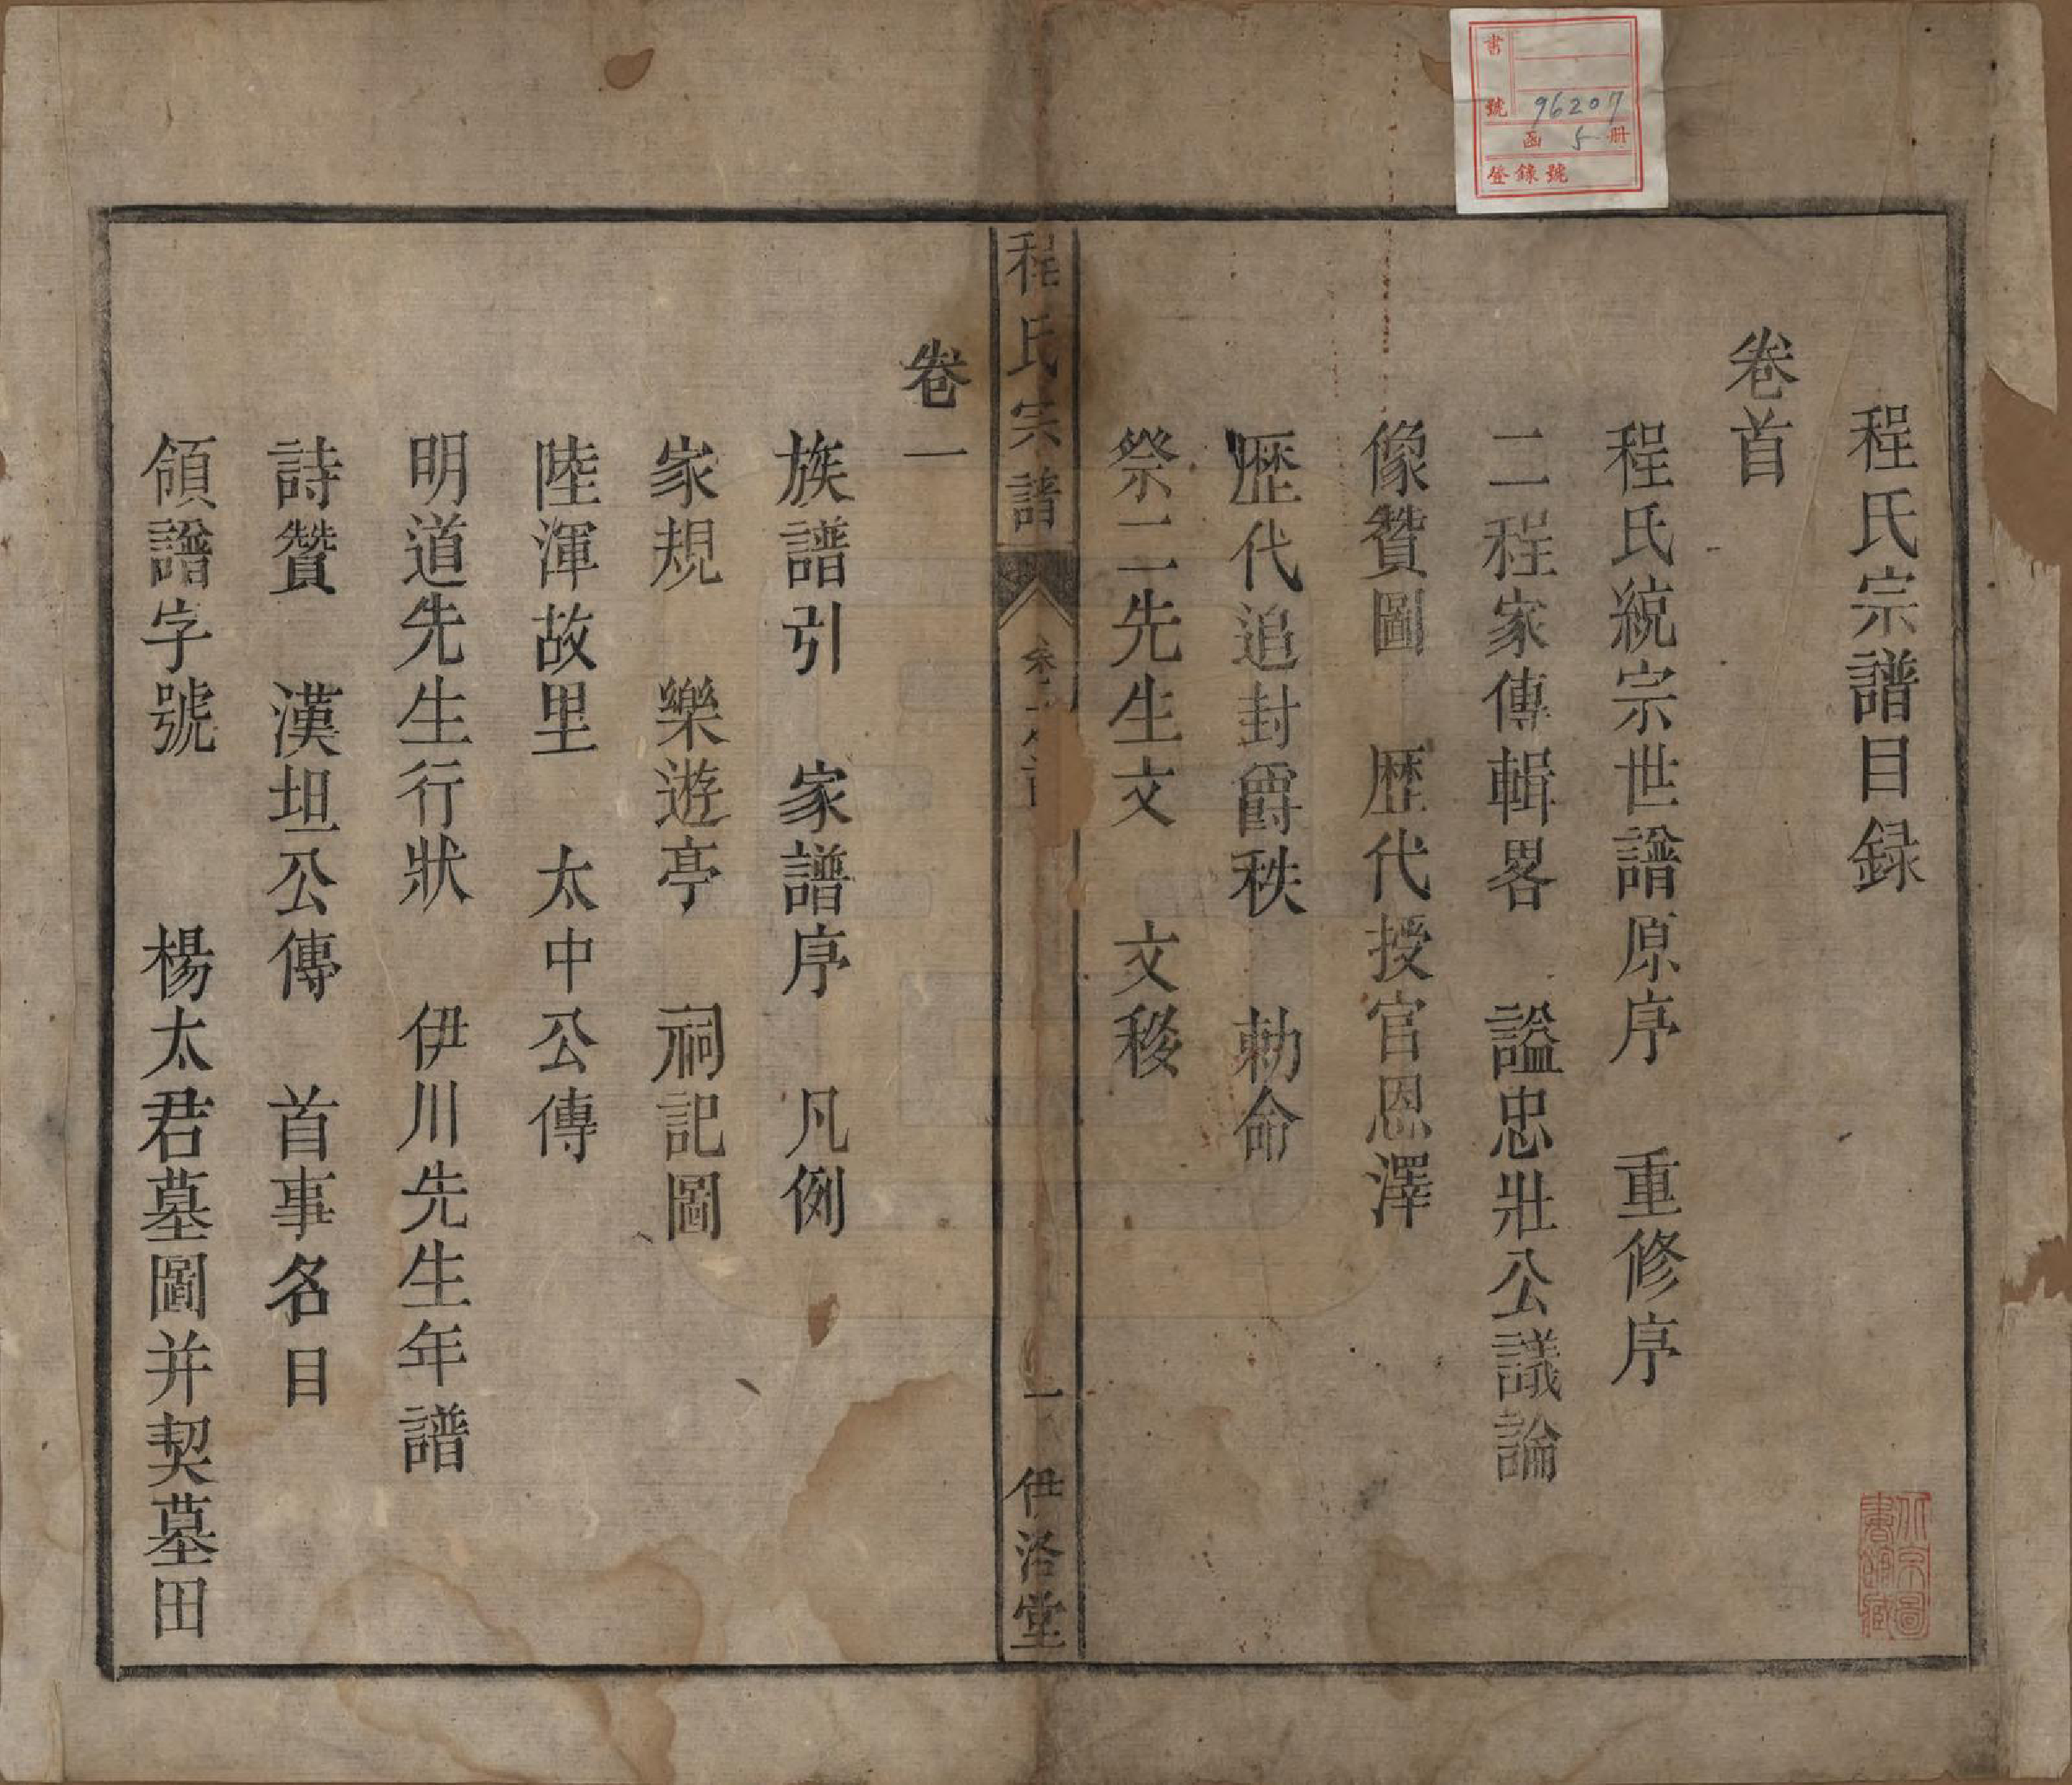 程氏宗譜目録
卷首
程氏統宗世譜原序 重修序
二程家傳輯畧 謚忠壯公議論
像贊圖 歷代授官恩澤
歷代追封爵秩 勅命
祭二先生文 文移
程氏宗譜
一
伊洛堂
卷一
族譜引 家譜序 凡例
家規 樂遊亭 祠記圖
陸渾故里 太中公傳
明道先生行狀 伊川先生年譜
詩贊 漢坦公傳 首事名目
領譜字號 楊太君墓圖并契墓田
書號 96207
函 5 册
登錄號